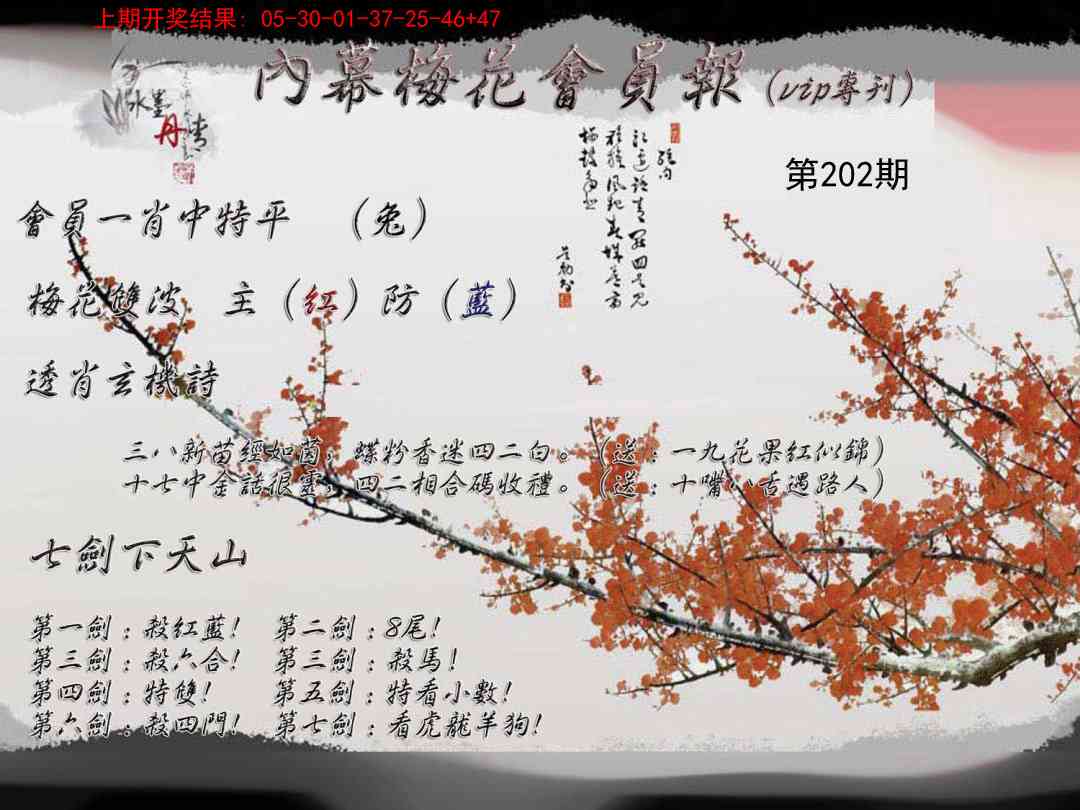 上期开奖结果: 05-30-01-37-25-46+47
內幕梅花會員報（vip專刊）
水墨丹青
第202期
會員一肖中特平　（兔）
梅花雙波　主（红）防（藍）
透肖玄機詩
三八新苗經如茵，蝶粉香迷四二白。（送：一九花果紅似錦）
十七中金話很靈，四二相合碼收禮。（送：十嘴八舌遇路人）
七劍下天山
第一劍：殺紅藍！　第二劍：8尾！
第三劍：殺六合！　第三劍：殺馬！
第四劍：特雙！　第五劍：特看小數！
第六劍：殺四門！　第七劍：看虎龍羊狗！